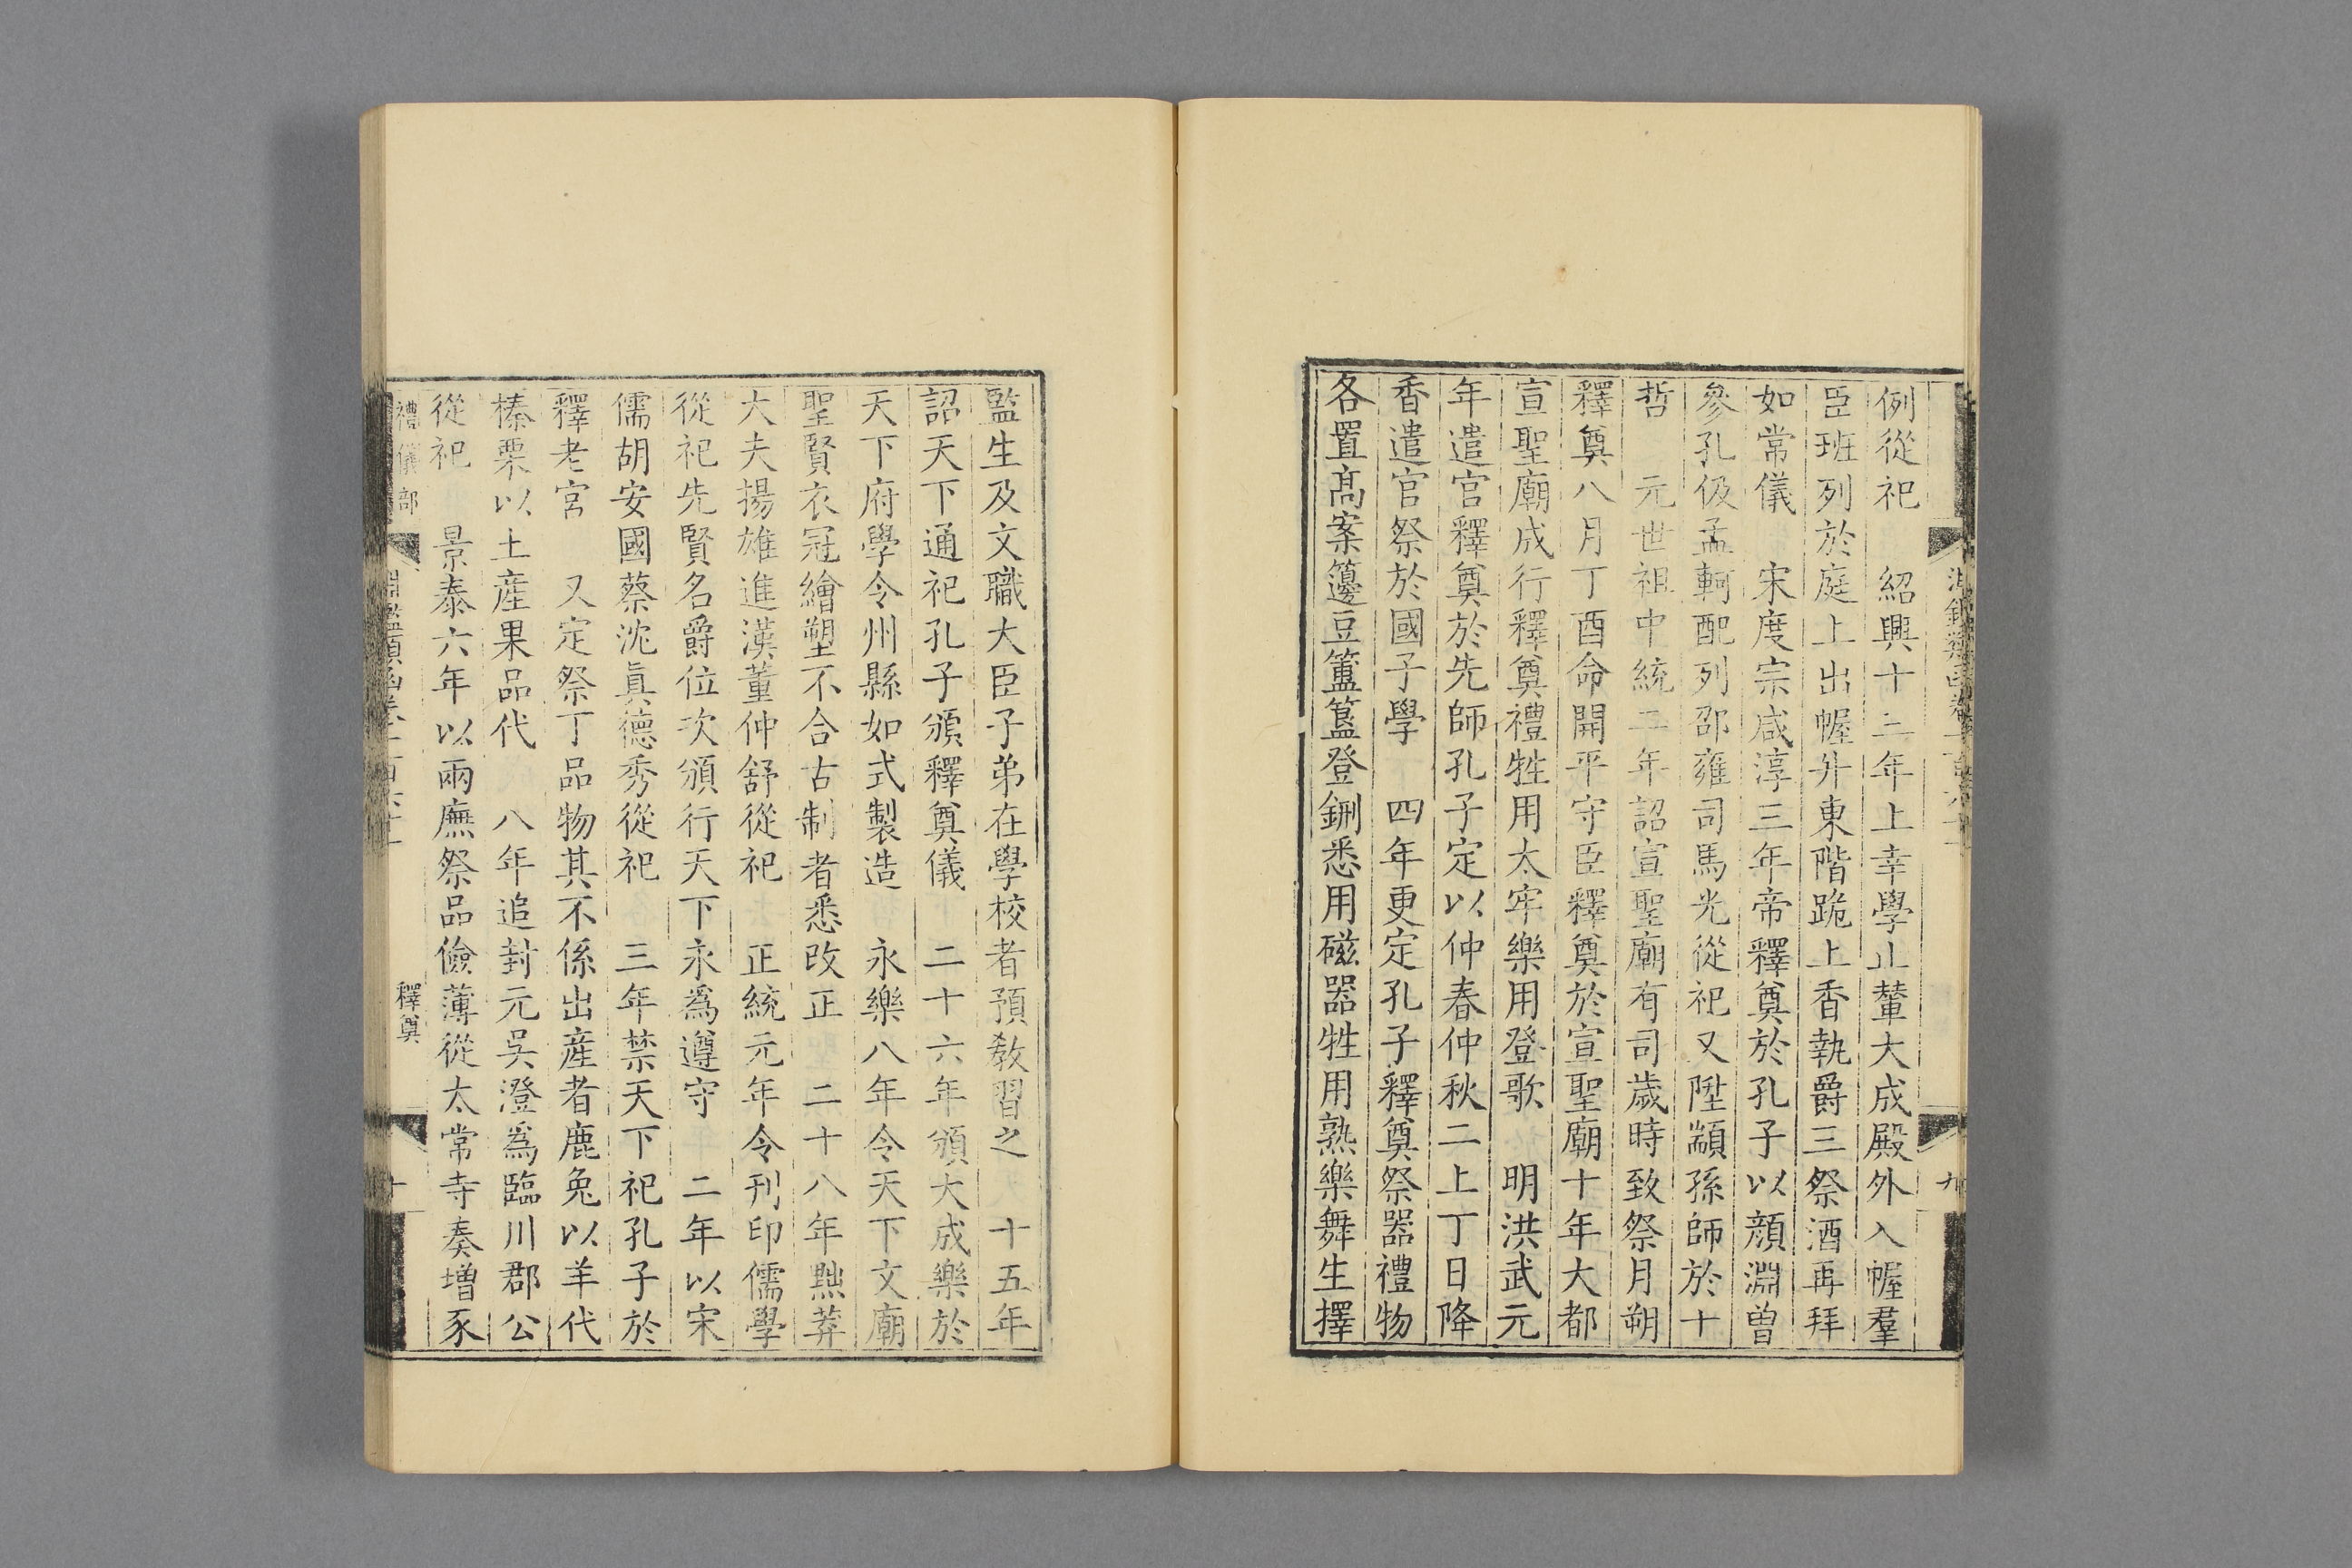 例從祀　紹興十三年上幸學止輦大成殿外入幄羣
臣班列於庭上出幄升東階跪上香執爵三祭酒再拜
如常儀　宋度宗咸淳三年帝釋奠於孔子以顔淵曽
參孔伋孟軻配列邵雍司馬光從祀又陞顓孫師於十
哲　元世祖中統二年詔宣聖廟有司歳時致祭月朔
釋奠八月丁酉命開平守臣釋奠於宣聖廟十年大都
宣聖廟成行釋奠禮牲用太牢樂用登歌　明洪武元
年遣官釋奠於先師孔子定以仲春仲秋二上丁日降
香遣官祭於國子學　四年更定孔子釋奠祭器禮物
各置髙案籩豆簠簋登鉶悉用磁器牲用熟樂舞生擇
九
監生及文職大臣子弟在學校者預敎習之　十五年
詔天下通祀孔子頒釋奠儀　二十六年頒大成樂於
天下府學令州縣如式製造　永樂八年令天下文廟
聖賢衣冠繪塑不合古制者悉改正　二十八年黜莽
大夫揚雄進漢董仲舒從祀　正統元年令刊印儒學
從祀先賢名爵位次頒行天下永爲遵守　二年以宋
儒胡安國蔡沈眞德秀從祀　三年禁天下祀孔子於
釋老宮　又定祭丁品物其不係出産者鹿兔以羊代
榛栗以土産果品代　八年追封元吳澄爲臨川郡公
從祀　景泰六年以兩廡祭品儉薄從太常寺奏增豕
禮儀部
釋奠
十